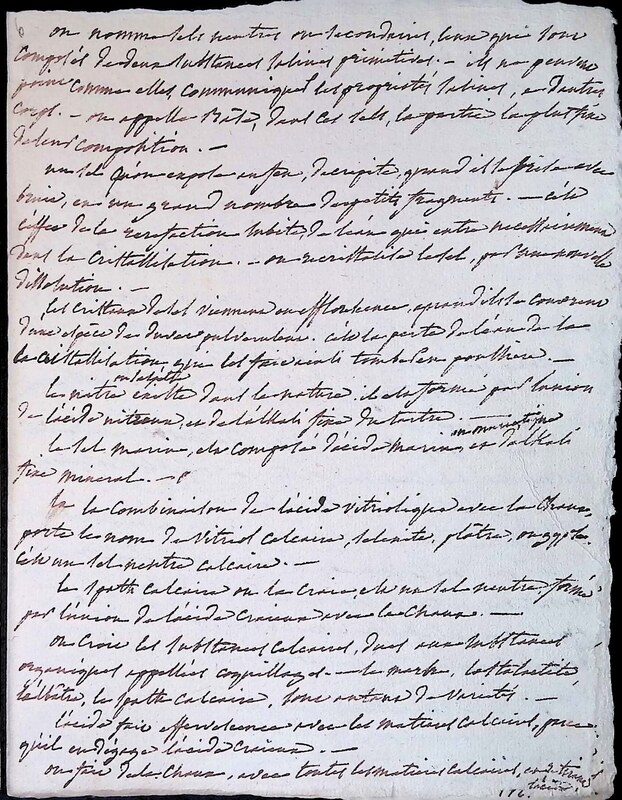 6
on nomme sels neutres ou secondaires, ceux qui sont
composés de deux substances salines primitives. - ils ne peuvent
point comme elles, communiquer les propriétés salines, a d'autres
corps. - on appelle Base, dans ces sels, la partie la plus fixe
de leur composition. -
un sel qu'on expose au feu, decrepite, quand il se brise avec
bruit, en un grand nombre de petits fragments. - c'est
l'effet de la rarefaction subite, de l'eau qui entre necessairement
dans la cristallisation. - on recristallise le sel, par une nouvelle
dissolution. -
les cristaux de sel viennent en efflorescence, quand ils se couvrent
d'une espèce de duvet pulverulent. c'est la perte de l'eau de la
la cristallisation qui les fait ainsi tomber en poussière. -
ou salpêtre
le nitre existe dans la nature. il est formé par l'union
de l'acide nitreux, et de l'alkali fixe du tartre. -
ou muriatique
le sel marin, est composé d'acide marin, et d'alkali
fixe mineral. -
la combinaison de l'acide vitriolique avec la chaux,
porte le nom de vitriol calcaire, selenite, plâtre, ou gypse.
c'est un sel neutre calcaire. -
le spath calcaire ou la craie, est un sel neutre, formé
par l'union de l'acide craieux avec la chaux. -
on croit les substances calcaires, dues aux substances
organiques appellées coquillages. - le marbre, la stalactite,
l'albâtre, le spath calcaire, sont autant de varietés. -
l'acide fait effervescence avec les matieres calcaires, parce
qu'il en dégage l'acide craieux. -
on fait de la chaux, avec toutes les matieres calcaires, en
l'acide